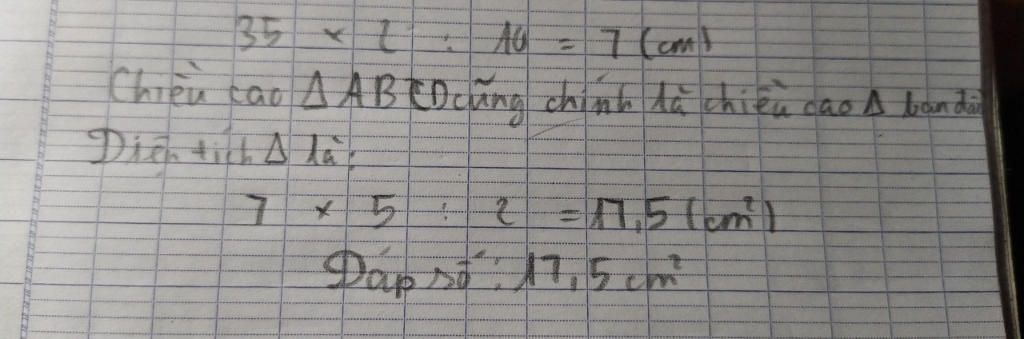 35 × 2 : 10 = 7 (cm)
Chiều cao Δ ABCD cũng chính là chiều cao Δ ban đầu
Diện tích Δ là:
7 × 5 : 2 = 17,5 (cm²)
Đáp số: 17,5 cm²